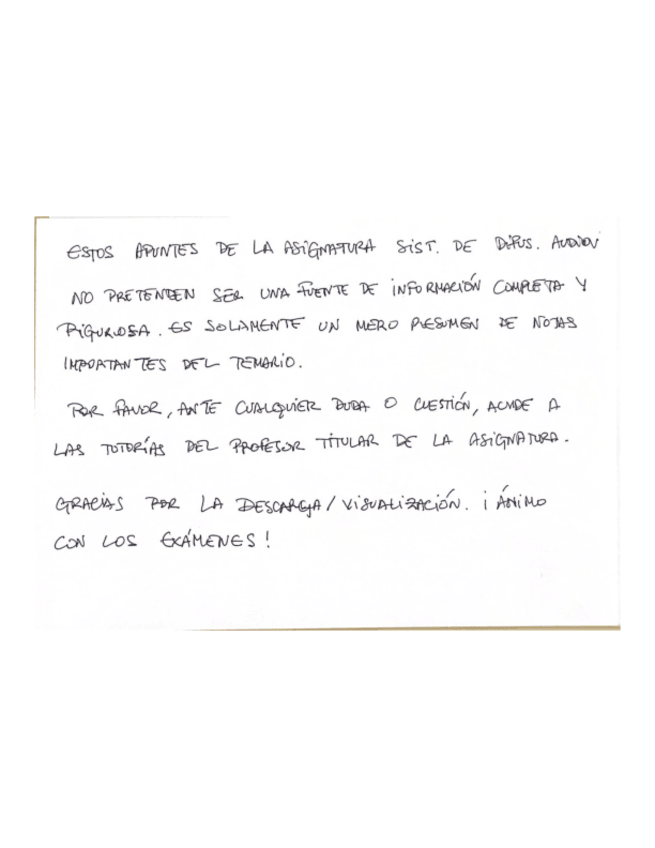 ESTOS APUNTES DE LA ASIGNATURA SIST. DE DIFUS. AUDIOV
NO PRETENDEN SER UNA FUENTE DE INFORMACIÓN COMPLETA Y
RIGUROSA. ES SOLAMENTE UN MERO RESUMEN DE NOTAS
IMPORTANTES DEL TEMARIO.
POR FAVOR, ANTE CUALQUIER DUDA O CUESTIÓN, ACUDE A
LAS TUTORÍAS DEL PROFESOR TITULAR DE LA ASIGNATURA.
GRACIAS POR LA DESCARGA/VISUALIZACIÓN. ¡ÁNIMO
CON LOS EXÁMENES!